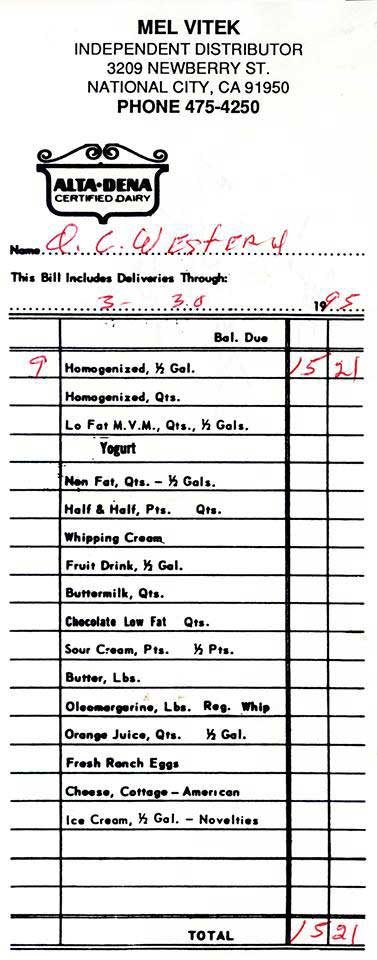 MEL VITEK
INDEPENDENT DISTRIBUTOR
3209 NEWBERRY ST.
NATIONAL CITY, CA 91950
PHONE 475-4250
ALTA•DENA
CERTIFIED DAIRY
Name O. C. WESTERN
This Bill Includes Deliveries Through:
3- 30 1995
Bal. Due
9 Homogenized, ½ Gal. 15 21
Homogenized, Qts.
Lo Fat M.V.M., Qts., ½ Gals.
Yogurt
Non Fat, Qts. - ½ Gals.
Half & Half, Pts. Qts.
Whipping Cream
Fruit Drink, ½ Gal.
Buttermilk, Qts.
Chocolate Low Fat Qts.
Sour Cream, Pts. ½ Pts.
Butter, Lbs.
Oleomargerine, Lbs. Reg. Whip
Orange Juice, Qts. ½ Gal.
Fresh Ranch Eggs
Cheese, Cottage - American
Ice Cream, ½ Gal. - Novelties
TOTAL 15 21